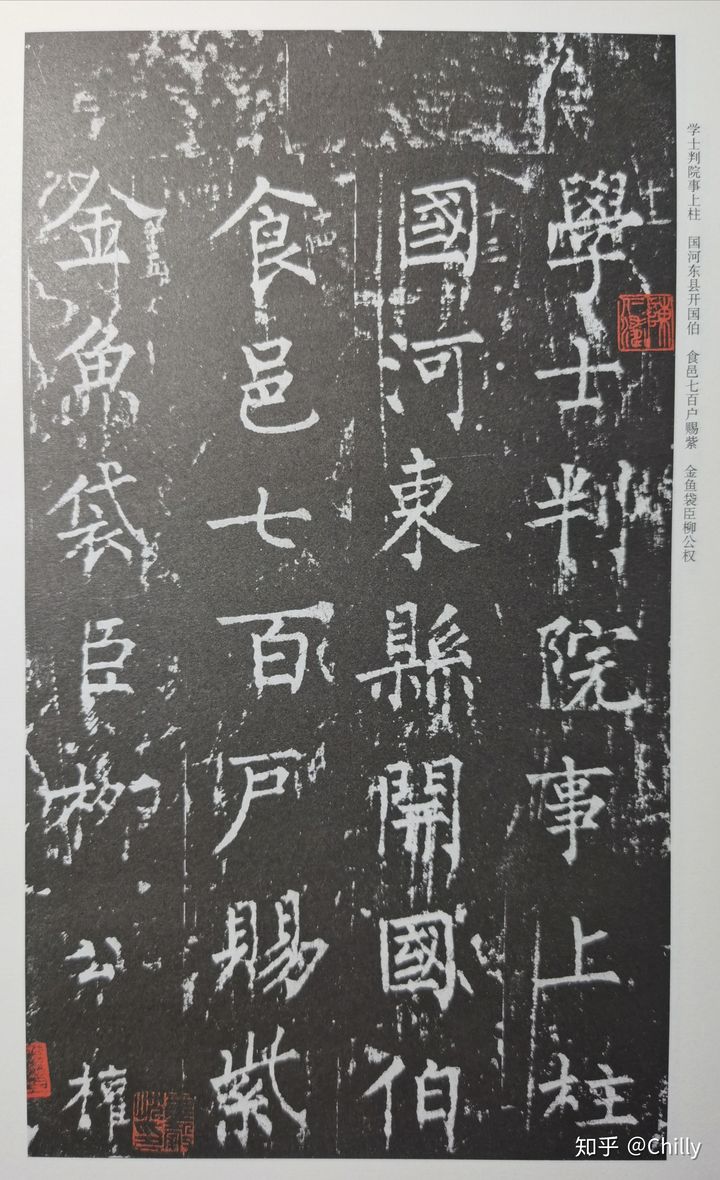 學士判院事上柱
國河東縣開國伯
食邑七百戶賜紫
金魚袋臣柳公權
十二
十三
十四
学士判院事上柱 国河东县开国伯 食邑七百户赐紫 金鱼袋臣柳公权
知乎 @Chilly